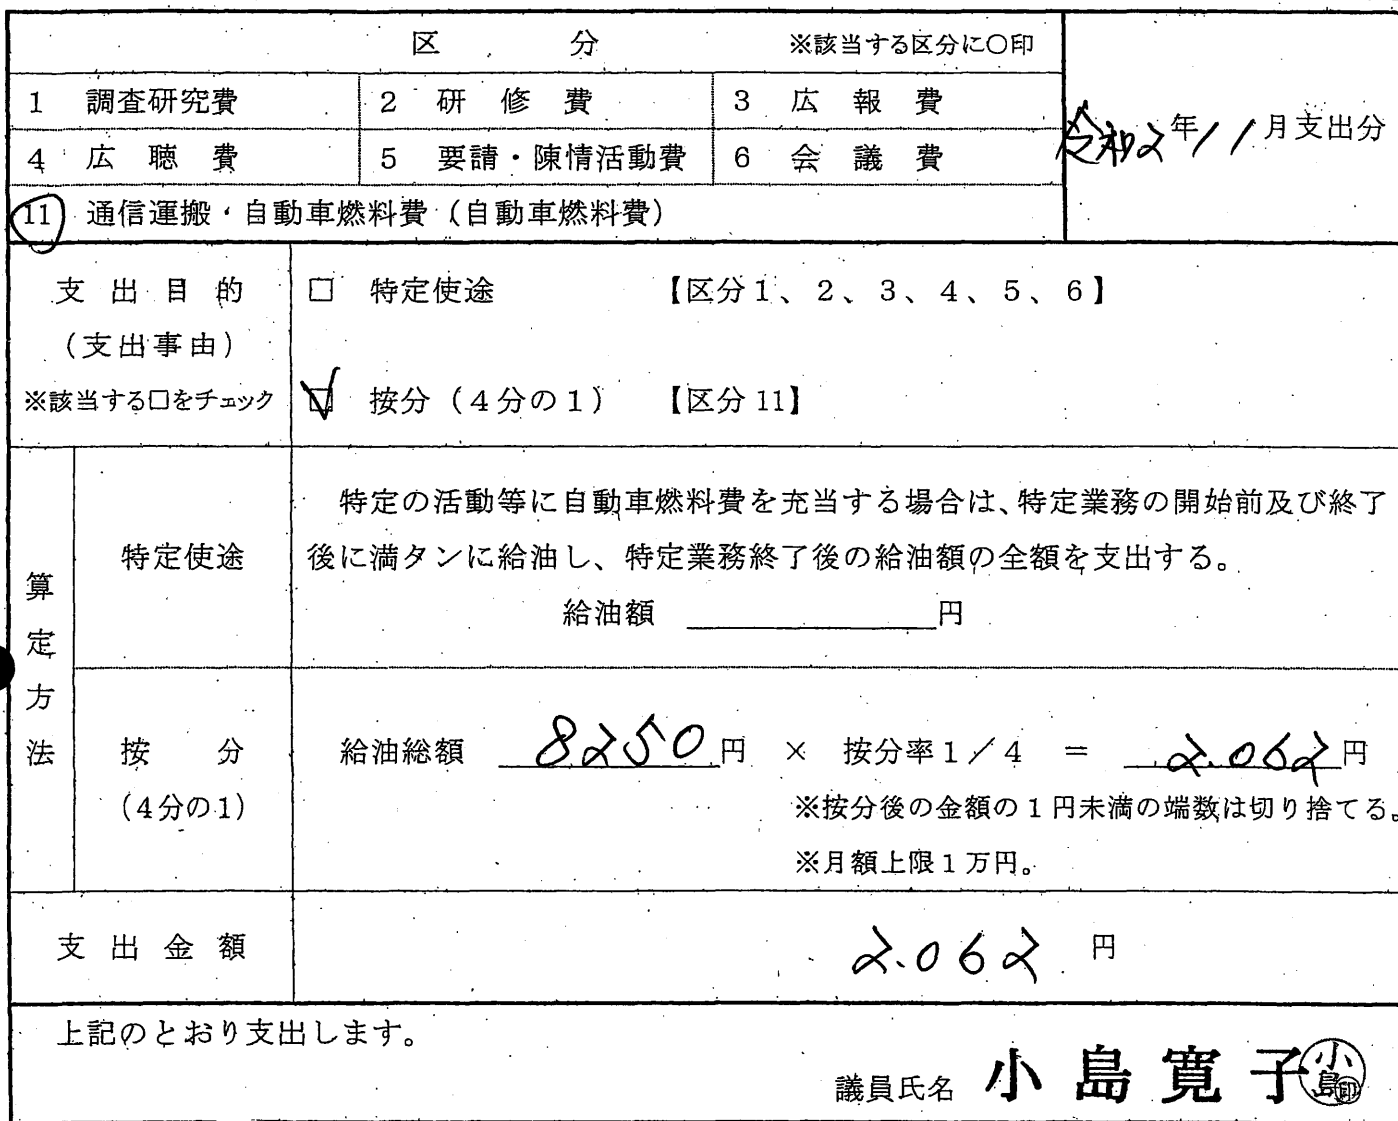 区 分 ※該当する区分に○印
1 調査研究費 2 研修費 3 広報費
令和2年11月支出分
4 広聴費 5 要請・陳情活動費 6 会議費
11 通信運搬・自動車燃料費(自動車燃料費)
支出目的
(支出事由)
※該当する□をチェック
□ 特定使途 【区分1、2、3、4、5、6】
☑ 按分(4分の1) 【区分11】
算定方法
特定使途
特定の活動等に自動車燃料費を充当する場合は、特定業務の開始前及び終了
後に満タンに給油し、特定業務終了後の給油額の全額を支出する。
給油額 円
按分
(4分の1)
給油総額 8250円 × 按分率1/4 = 2.062円
※按分後の金額の1円未満の端数は切り捨てる。
※月額上限1万円。
支出金額 2.062 円
上記のとおり支出します。
議員氏名 小島寛子 小島印